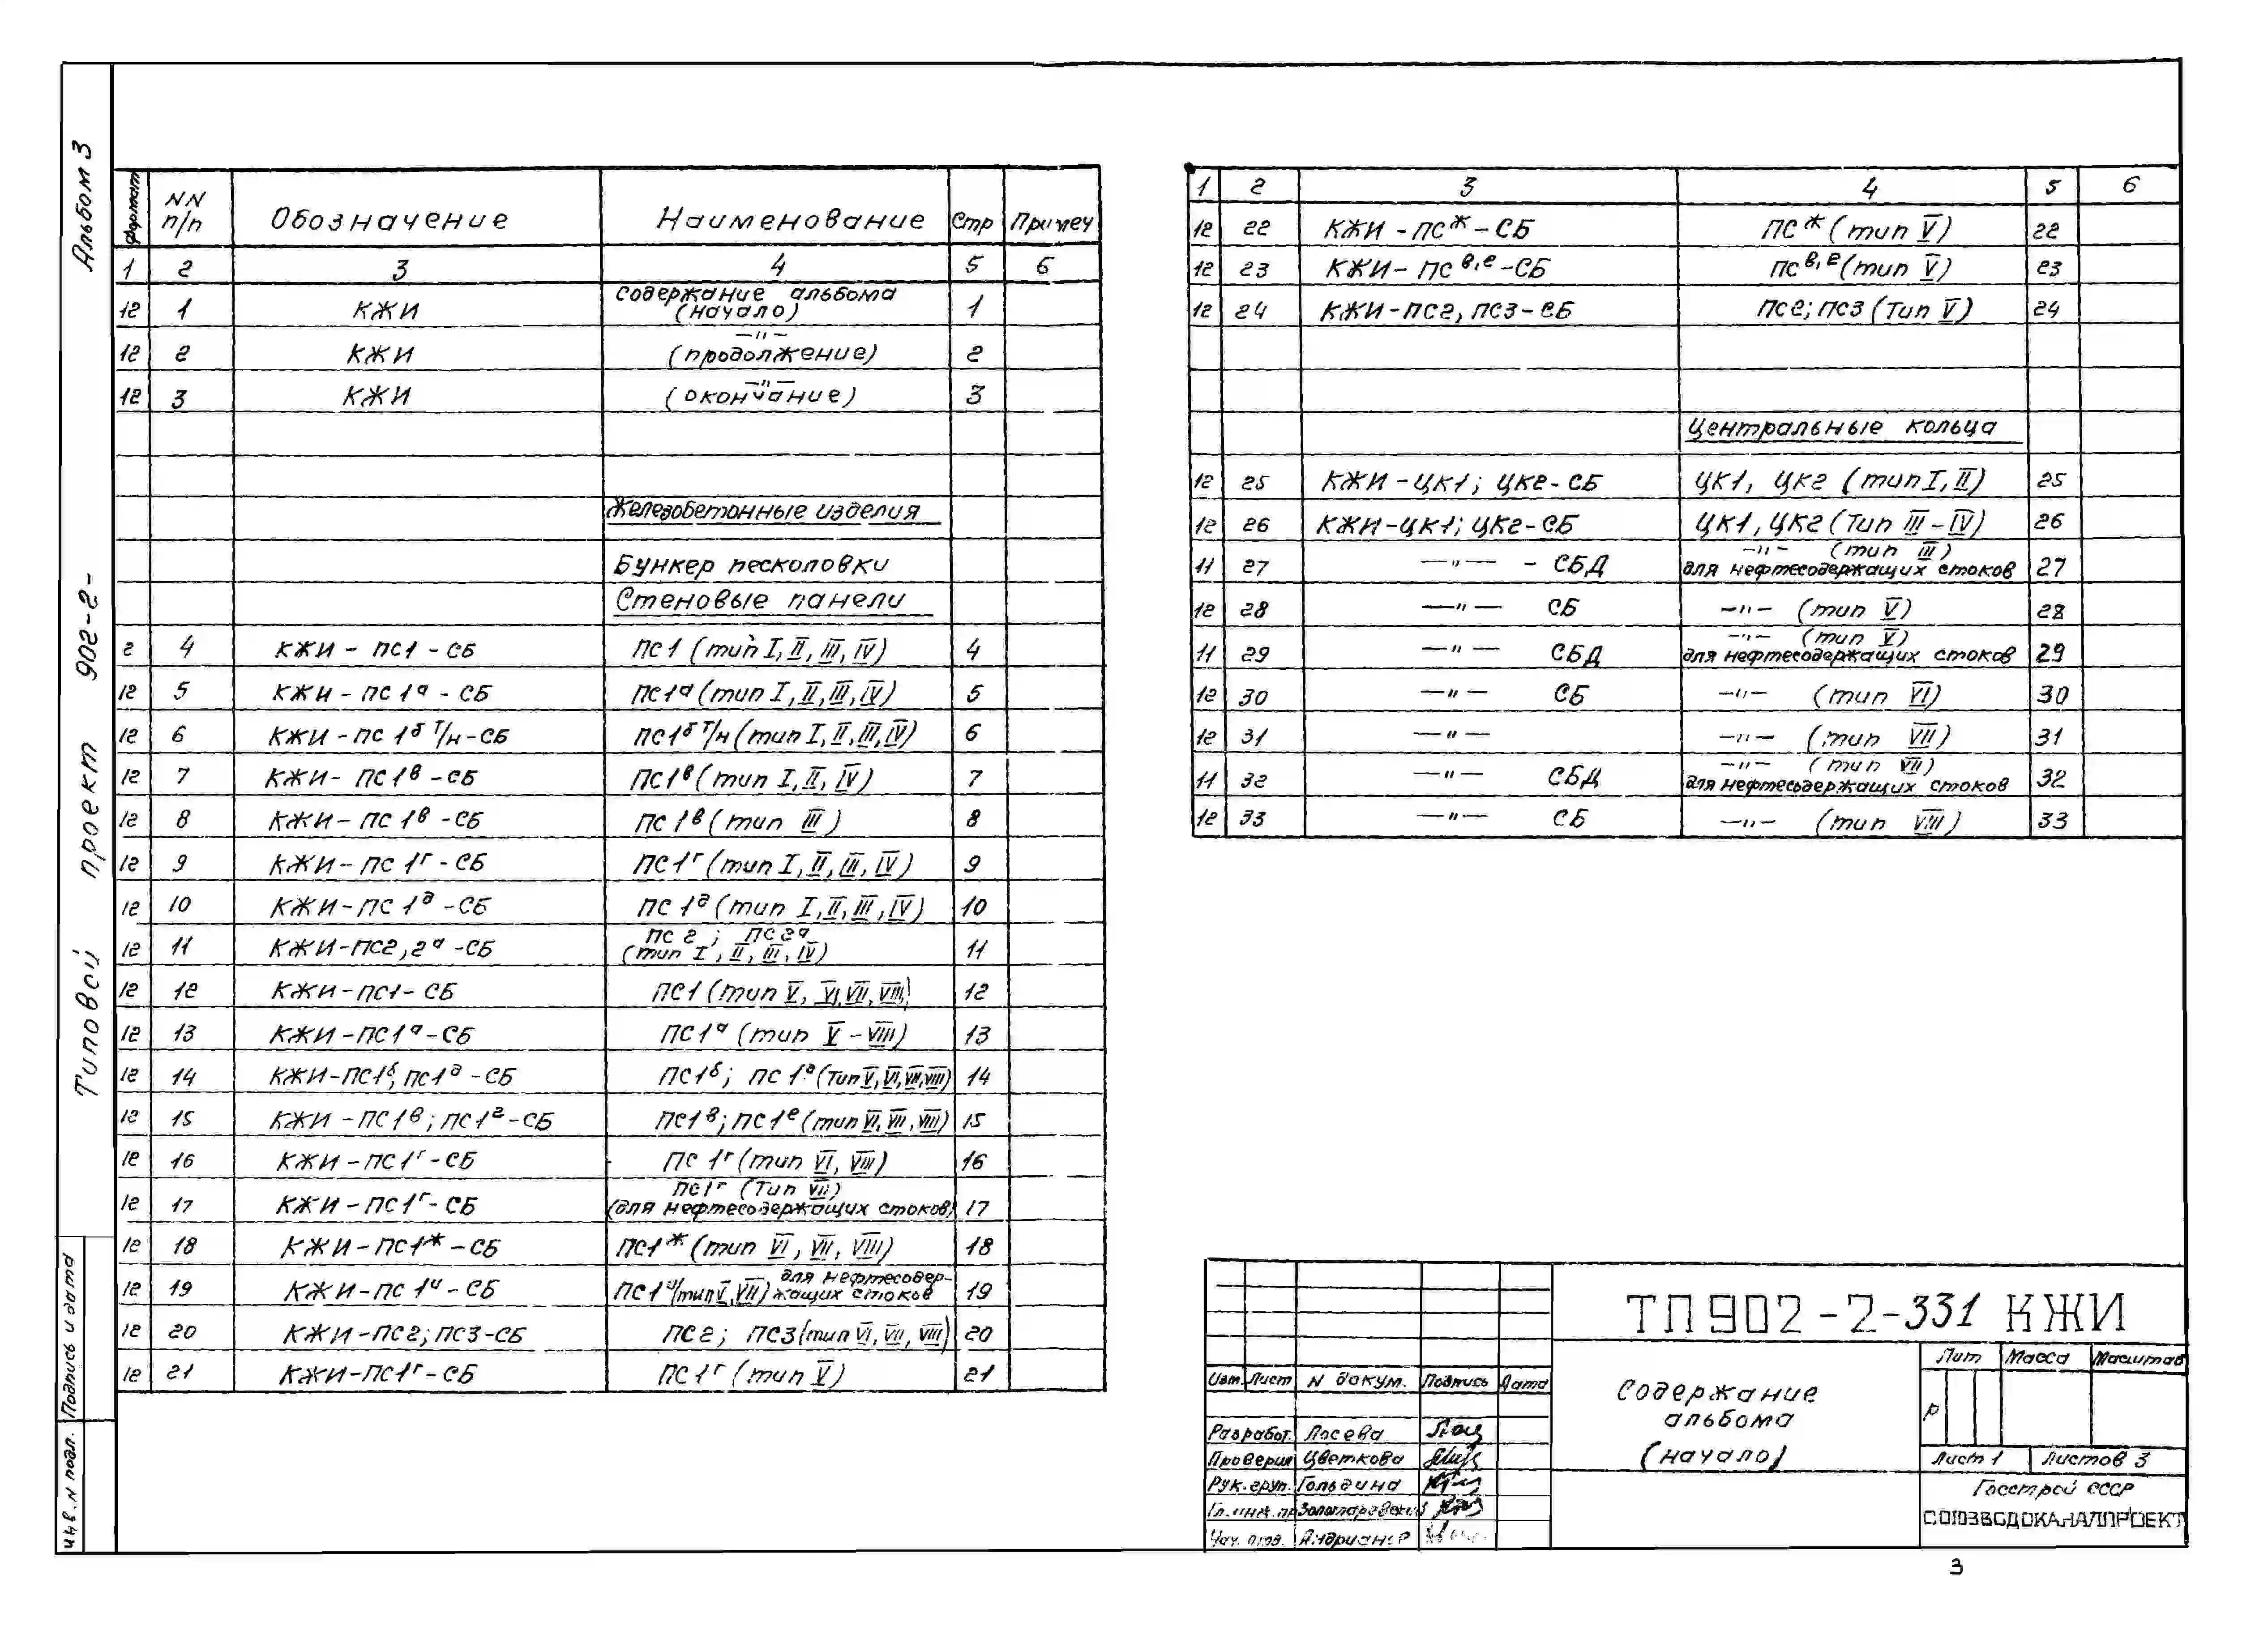 Альбом 3
Типовой проект 902-2-
Подпись и дата
Инв. N подл.
Формат | NN п/п | Обозначение | Наименование | Стр | Примеч
1 | 2 | 3 | 4 | 5 | 6
12 | 1 | КЖИ | Содержание альбома (начало) | 1
12 | 2 | КЖИ | —"— (продолжение) | 2
12 | 3 | КЖИ | —"— (окончание) | 3
Железобетонные изделия
Бункер песколовки
Стеновые панели
2 | 4 | КЖИ - ПС1 - СБ | ПС1 (тип I, II, III, IV) | 4
12 | 5 | КЖИ - ПС1а - СБ | ПС1а (тип I, II, III, IV) | 5
12 | 6 | КЖИ - ПС 1б т/н - СБ | ПС1б т/н (тип I, II, III, IV) | 6
12 | 7 | КЖИ - ПС1в - СБ | ПС1в (тип I, II, IV) | 7
12 | 8 | КЖИ - ПС 1в - СБ | ПС 1в (тип III) | 8
12 | 9 | КЖИ - ПС 1г - СБ | ПС1г (тип I, II, III, IV) | 9
12 | 10 | КЖИ - ПС 1д - СБ | ПС 1д (тип I, II, III, IV) | 10
12 | 11 | КЖИ-ПС2, 2а - СБ | ПС 2 ; ПС2а (тип I, II, III, IV) | 11
12 | 12 | КЖИ-ПС1- СБ | ПС1 (тип V, VI, VII, VIII) | 12
12 | 13 | КЖИ-ПС1а-СБ | ПС1а (тип V - VIII) | 13
12 | 14 | КЖИ-ПС1б, ПС1д - СБ | ПС1б; ПС 1д (тип V, VI, VII, VIII) | 14
12 | 15 | КЖИ - ПС1в; ПС1е-СБ | ПС1в; ПС1е (тип VI, VII, VIII) | 15
12 | 16 | КЖИ-ПС1г-СБ | ПС 1г (тип VI, VIII) | 16
12 | 17 | КЖИ-ПС1г-СБ | ПС1г (Тип VII) (для нефтесодержащих стоков) | 17
12 | 18 | КЖИ-ПС1ж-СБ | ПС1ж (тип VI, VII, VIII) | 18
12 | 19 | КЖИ-ПС 1и-СБ | ПС1и (тип V, VII) для нефтесодержащих стоков | 19
12 | 20 | КЖИ-ПС2; ПС3-СБ | ПС2; ПС3 (тип VI, VII, VIII) | 20
12 | 21 | КЖИ-ПС1г-СБ | ПС1г (тип V) | 21
1 | 2 | 3 | 4 | 5 | 6
12 | 22 | КЖИ - ПСж - СБ | ПСж (тип V) | 22
12 | 23 | КЖИ - ПСв,е - СБ | ПСв,е (тип V) | 23
12 | 24 | КЖИ-ПС2, ПС3-СБ | ПС2; ПС3 (Тип V) | 24
Центральные кольца
12 | 25 | КЖИ - ЦК1; ЦК2- СБ | ЦК1, ЦК2 (тип I, II) | 25
12 | 26 | КЖИ-ЦК1; ЦК2-СБ | ЦК1, ЦК2 (Тип III - IV) | 26
11 | 27 | —"— - СБД | —"— (тип III) для нефтесодержащих стоков | 27
12 | 28 | —"— СБ | —"— (тип V) | 28
11 | 29 | —"— СБД | —"— (тип V) для нефтесодержащих стоков | 29
12 | 30 | —"— СБ | —"— (тип VI) | 30
12 | 31 | —"— | —"— (тип VII) | 31
11 | 32 | —"— СБД | —"— (тип VII) для нефтесодержащих стоков | 32
12 | 33 | —"— СБ | —"— (тип VIII) | 33
ТП 902-2-331 КЖИ
Изм. Лист N докум. Подпись Дата
Разработ. Лосева
Проверил Цветкова
Рук. груп. Гольдина
Гл. инж. пр.
Нач. отд.
Содержание
альбома
(начало)
Лит Масса Масштаб
р
Лист 1 Листов 3
Госстрой СССР
СОЮЗВОДОКАНАЛПРОЕКТ
3